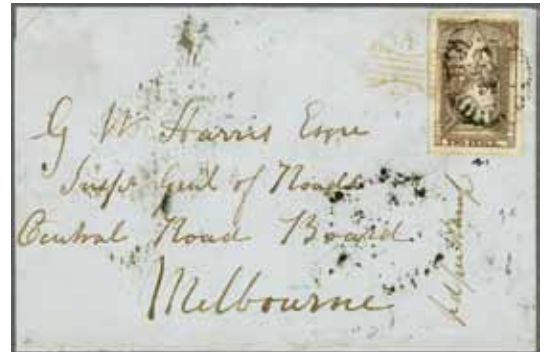 G W Harris Esqre
Insp Genl of Roads
Central Road Board
Melbourne
TWO PENCE